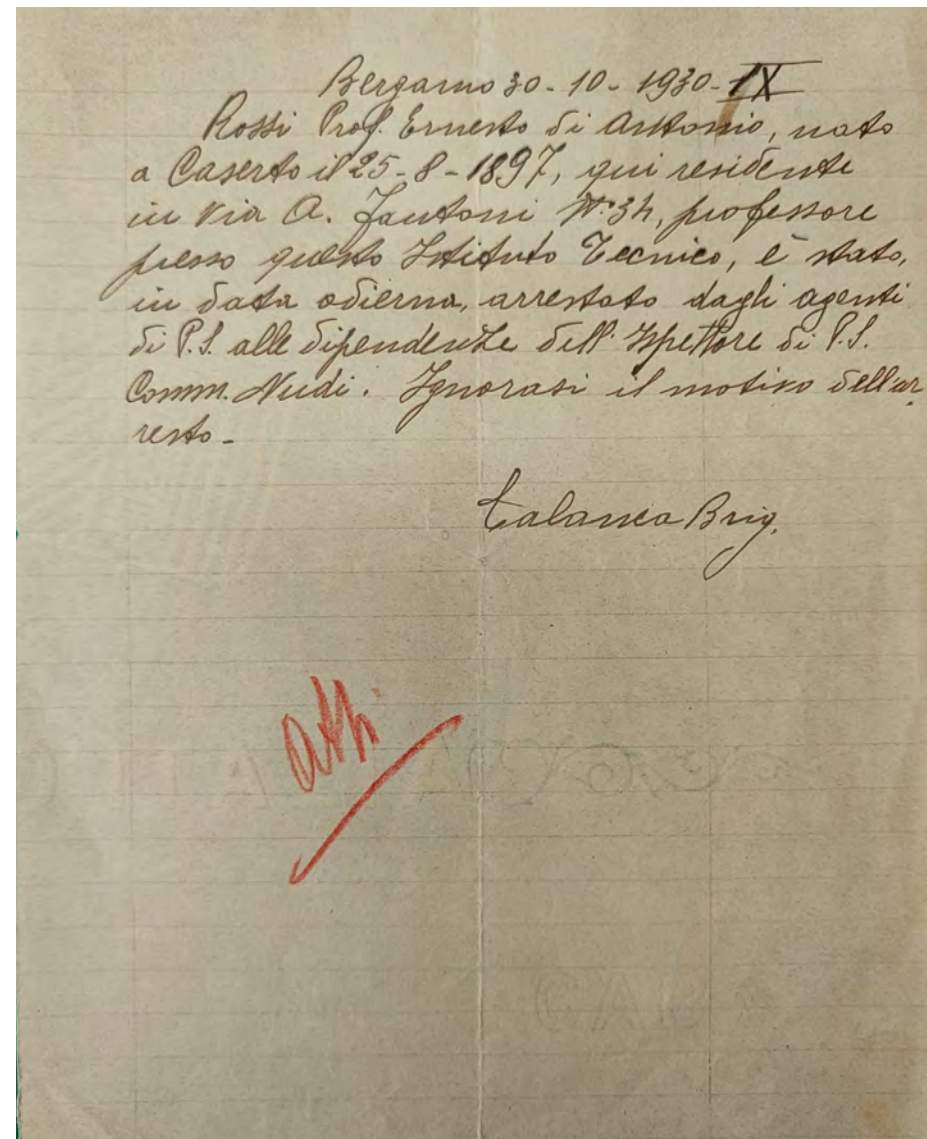 Bergamo 30-10-1930-IX
Rossi Prof. Ernesto di Antonio, nato
a Caserta il 25-8-1897, qui residente
in Via A. Fantoni N° 34, professore
presso questo Istituto Tecnico, è stato,
in data odierna, arrestato dagli agenti
di P.S. alle dipendenze dell'Ispettore di P.S.
Comm. Nudi. Ignorasi il motivo dell'ar
resto-
Brig.
atti